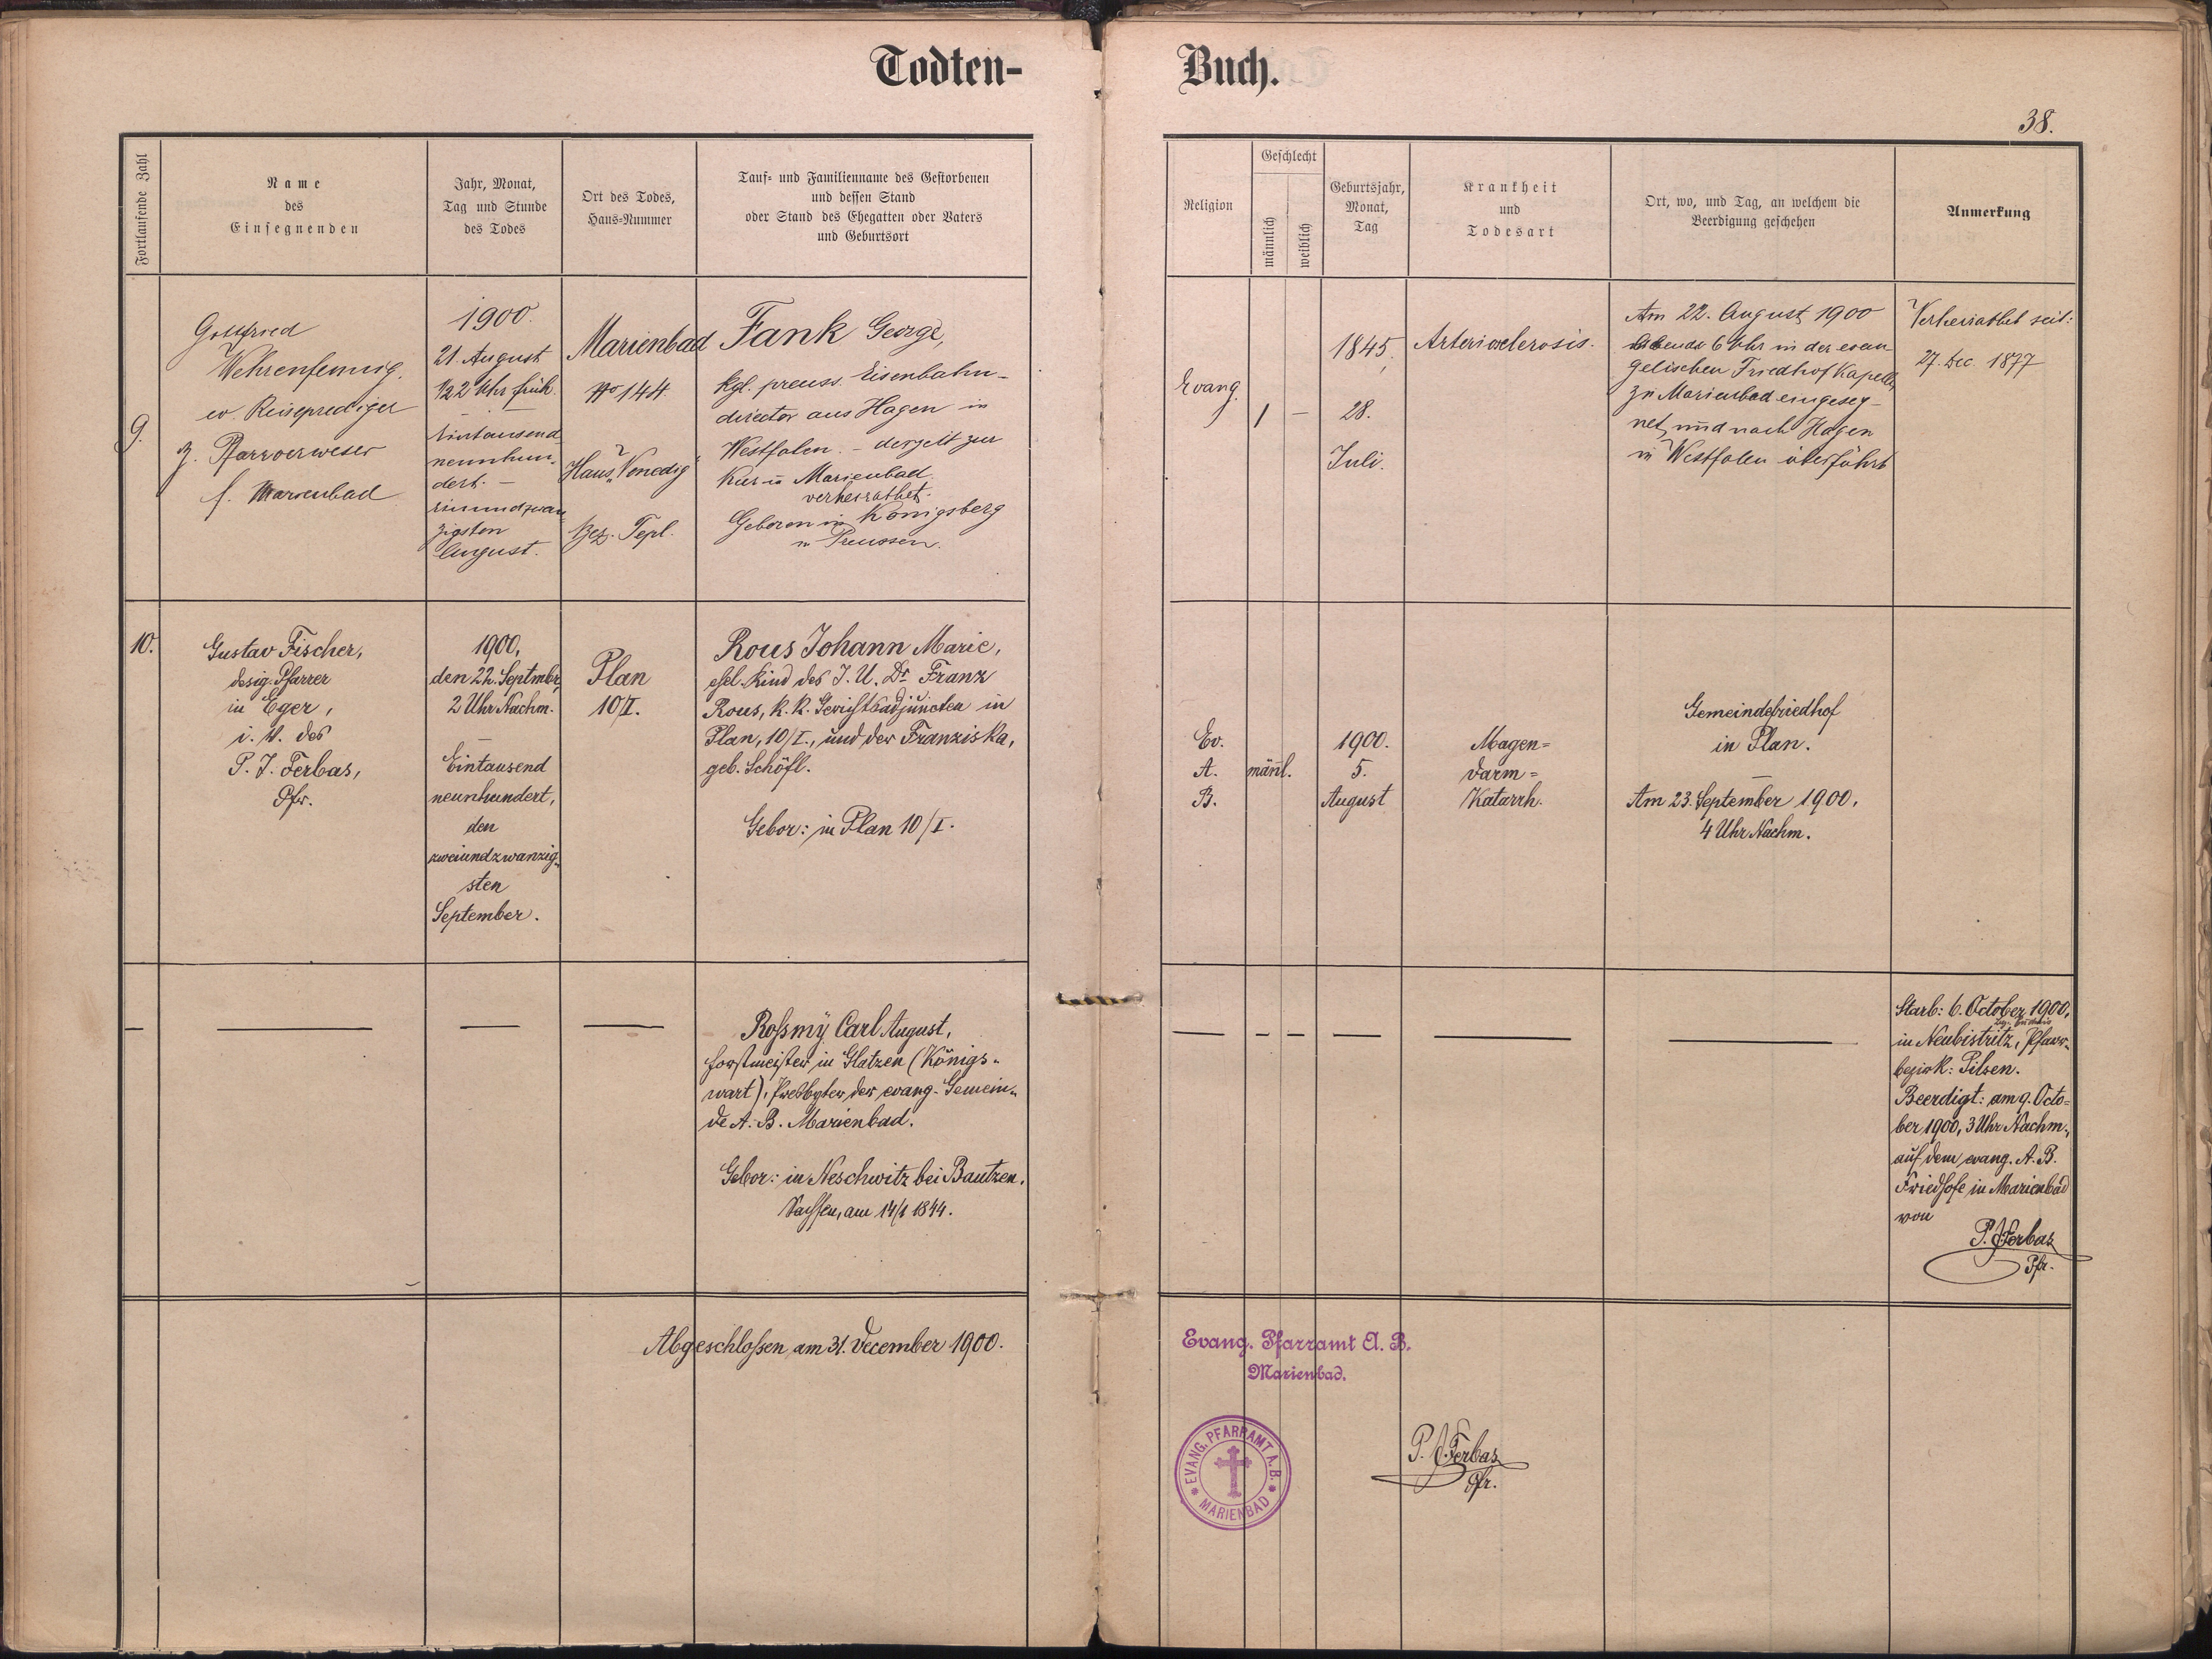 Todten-
Buch.
38.
Fortlaufende Zahl
Name
des
Einsegnenden
Jahr, Monat,
Tag und Stunde
des Todes
Ort des Todes,
Haus-Nummer
Tauf- und Familienname des Gestorbenen
und dessen Stand
oder Stand des Ehegatten oder Vaters
und Geburtsort
Religion
Geschlecht
männlich
weiblich
Geburtsjahr,
Monat,
Tag
Krankheit
und
Todesart
Ort, wo, und Tag, an welchem die
Beerdigung geschehen
Anmerkung
9.
Gottfried
Wehrenfennig,
ev. Reiseprediger
z. Pfarrverweser
f. Marienbad
1900.
21. August
1/2 2 Uhr früh.
Eintausend
neunhun-
dert. –
einundzwan
zigsten
August.
Marienbad
No 144
Haus „Venedig"
Bez. Tepl.
Fank George,
kgl. preuss. Eisenbahn-
director aus Hagen in
Westfalen. – derzeit zur
Kur in Marienbad
verheirathet.
Geboren in Königsberg
in Preussen.
Evang.
1 –
1845,
28.
Juli.
Arteriosclerosis.
Am 22. August 1900
Abends 6 Uhr in der evan
gelischen Friedhof Kapelle
zu Marienbad eingeseg-
net, und nach Hagen
in Westfalen überführt
Verheirathet seit:
27. Dec. 1877
10.
Gustav Fischer,
desig. Pfarrer
in Eger,
i. V. des
P. J. Ferbas,
Pfr.
1900,
den 22. Septmber,
2 Uhr Nachm.
–
Eintausend
neunhundert,
den
zweiundzwanzig-
sten
September.
Plan
10/I.
Rous Johann Marie,
ehel. Kind des J. U. Dr. Franz
Rous, k. k. Gerichtsadjuncten in
Plan, 10/I., und der Franziska,
geb. Schöfl.
Gebor: in Plan 10/I.
Ev.
A.
B.
männl.
1900.
5.
August
Magen=
darm=
Katarrh.
Gemeindefriedhof
in Plan.
–
Am 23. September 1900,
4 Uhr Nachm.
–
Roßmÿ Carl August,
Forstmeister in Glatzen (Königs-
wart), Presbyter der evang. Gemein-
de A. B. Marienbad.
Gebor: in Neschwitz bei Bautzen,
Sachsen, am 14/1 1844.
Starb: 6. October 1900,
in Neubistritz, Pfarr-
bezirk: Pilsen.
Beerdigt: am 9. Octo-
ber 1900, 3 Uhr Nachm.,
auf dem evang. A. B.
Friedhofe in Marienbad
von
P. J. Ferbas
Pfr.
Abgeschloßen am 31. December 1900.
Evang. Pfarramt A. B.
Marienbad.
EVANG. PFARRAMT A. B.
* MARIENBAD *
P. J. Ferbas
Pfr.